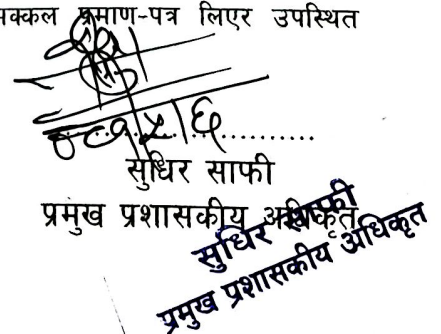 मक्कल प्रमाण-पत्र लिएर उपस्थित
सुधिर साफी
प्रमुख प्रशासकीय अधिकृत
सुधिर साफी
प्रमुख प्रशासकीय अधिकृत